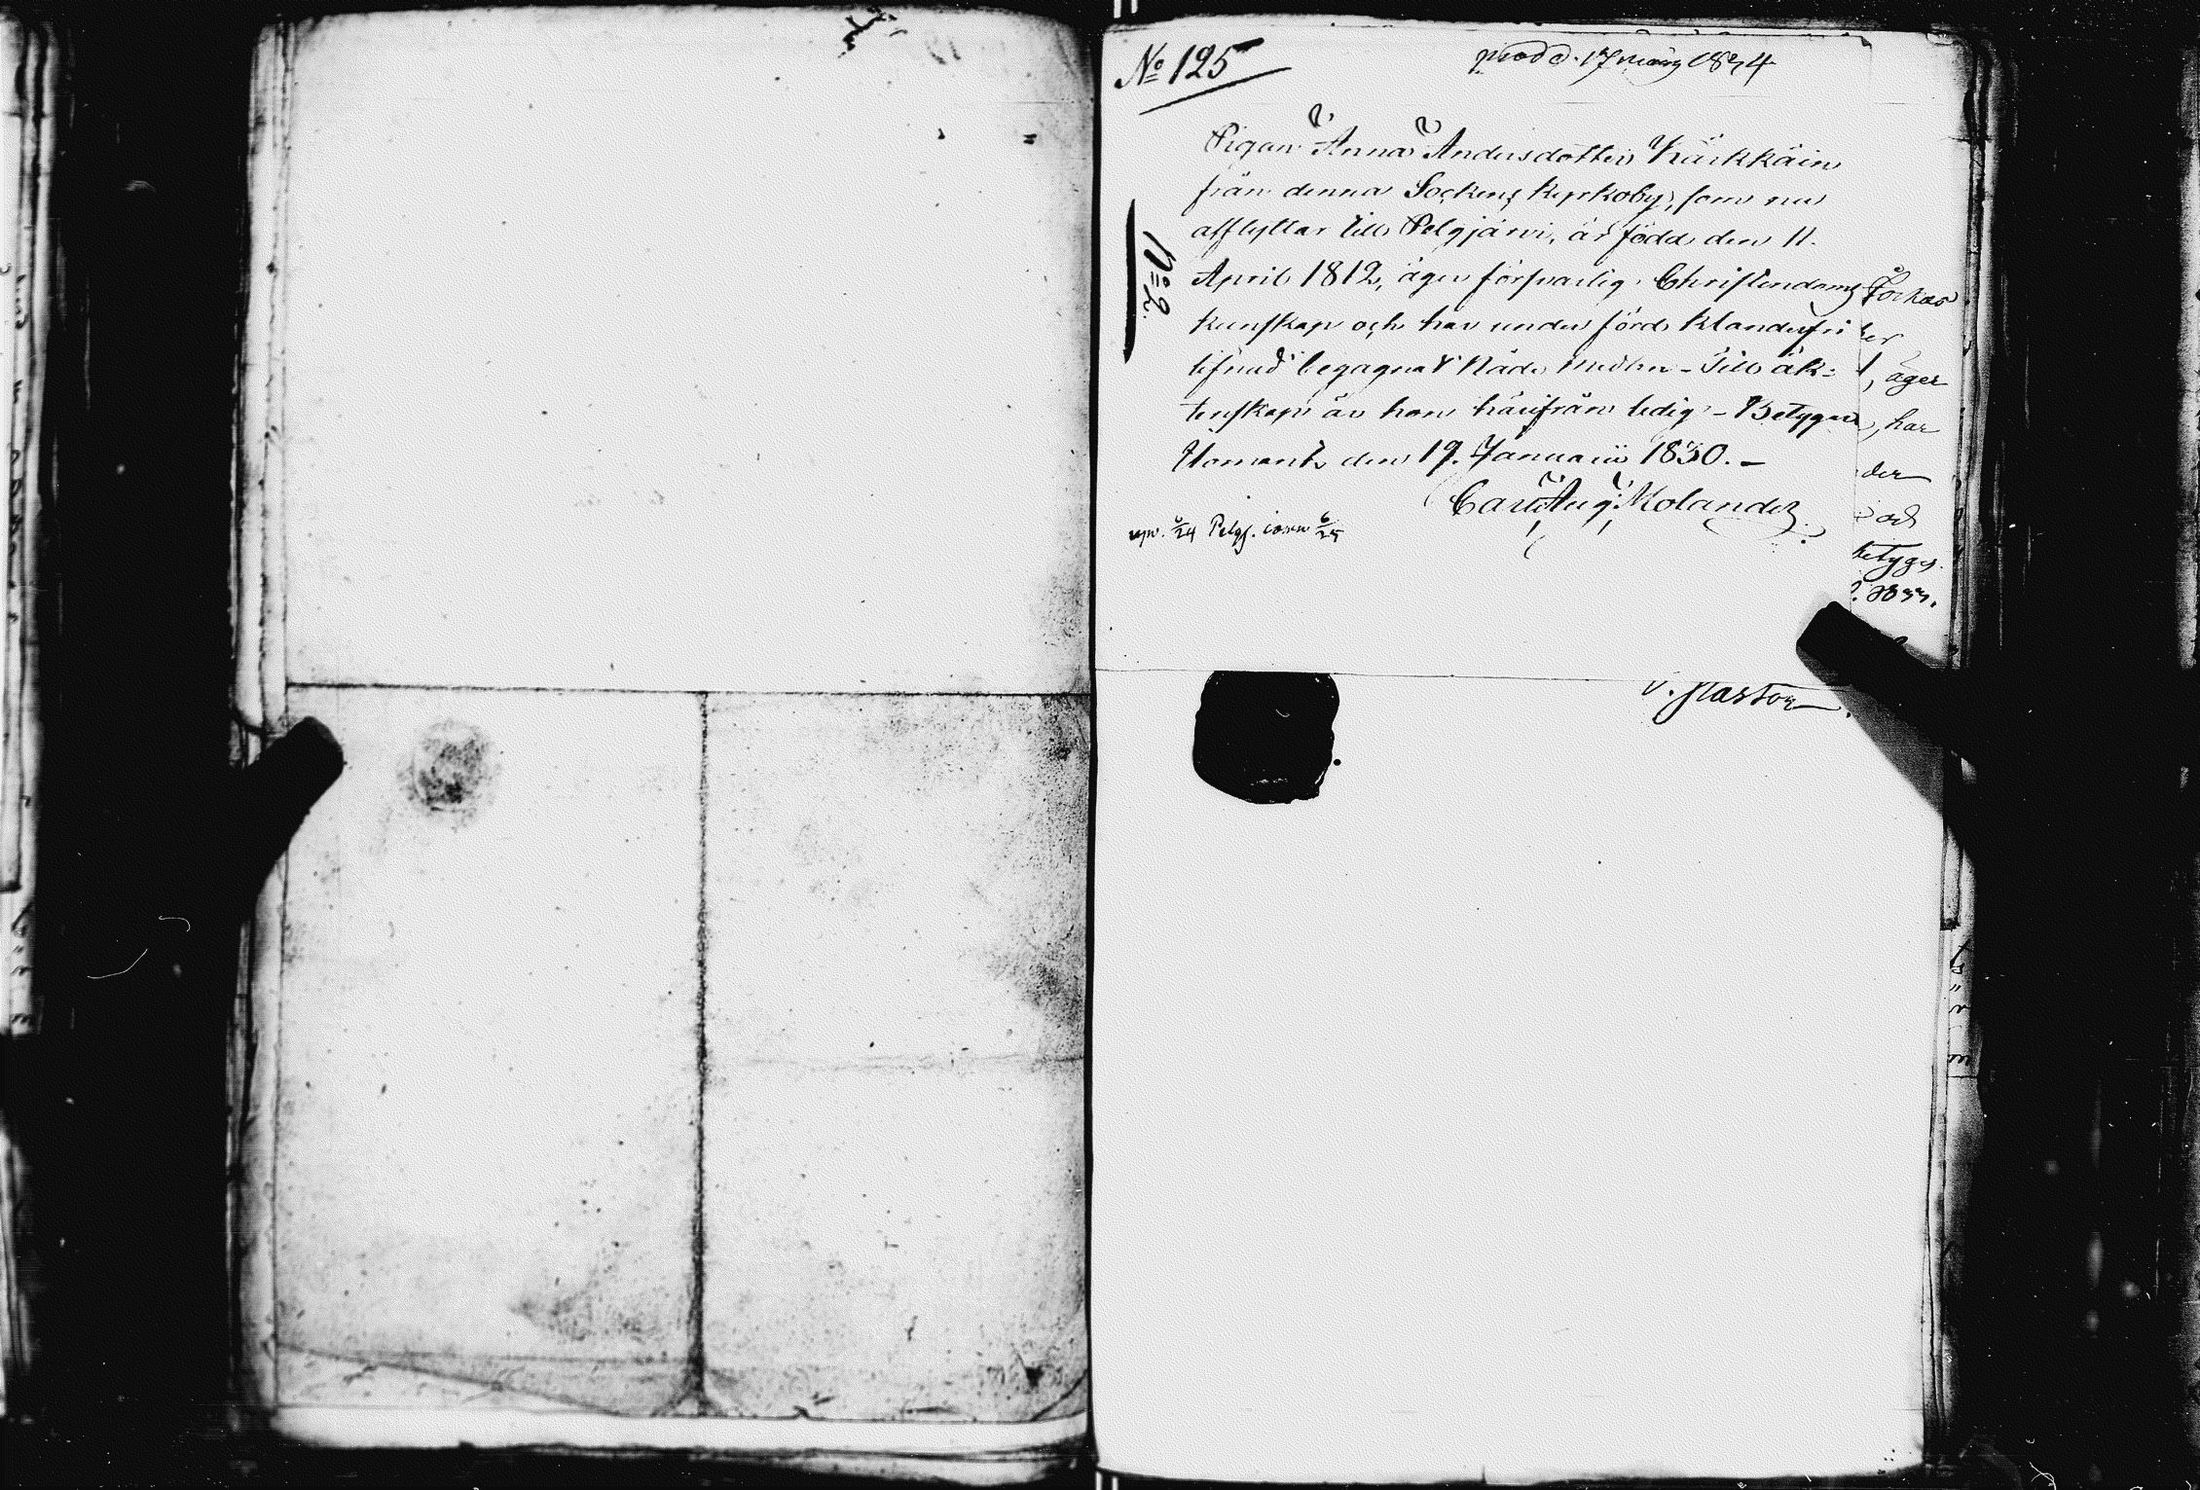 No 125
prod d. 17 märz 1834
Pigan Anna Andersdotter Kärkkäin
från denna Sockens kyrkoby, som nu
afflyttar till Pelgjärvi, är född den 11.
April 1812, äger försvarlig Christendoms
kunskap och har under förd klanderfri
lefnad begagnat Nådemedlen - Till äk-
tenskap är hon härifrån ledig - Betygar
Ilomants den 19. Januarii 1830. -
Carl Aug. Molander
No 2.
Pelgj.
äger
, har
der
och
betygas
V. Pastor.